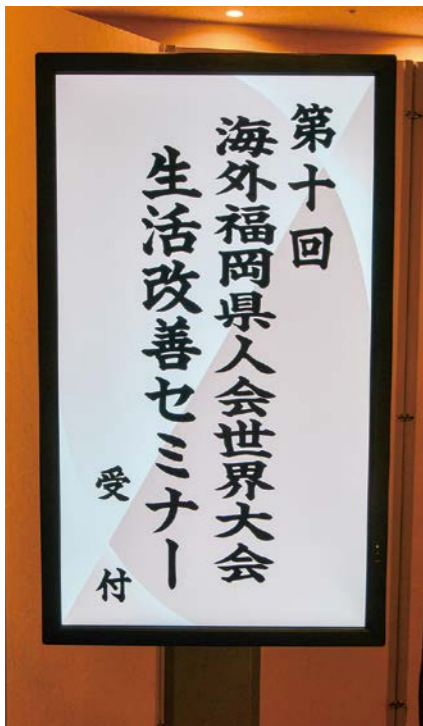 第十回
海外福岡県人会世界大会
生活改善セミナー
受付